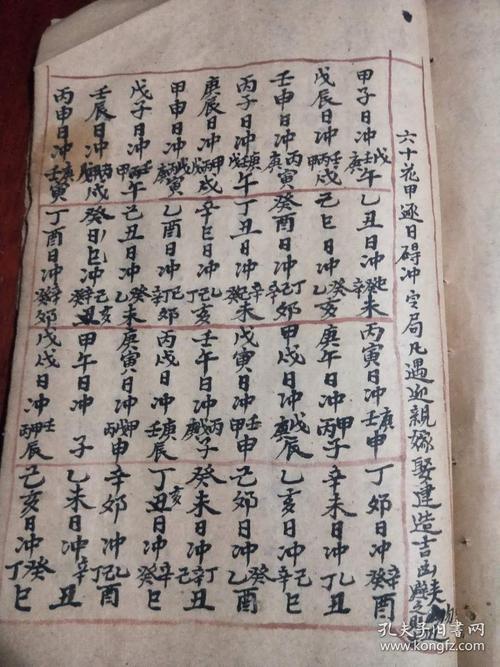 六十花甲逐日碍冲定局凡遇迎親嫁娶建造吉凶
甲子日冲戊壬庚午 乙丑日冲癸辛未 丙寅日冲庚壬申 丁夘日冲辛癸酉
戊辰日冲壬甲丙戌 己巳日冲癸乙亥 庚午日冲甲丙子 辛未日冲乙丁丑
壬申日冲丙庚寅 癸酉日冲丁己辛夘 甲戌日冲戊庚辰 乙亥日冲己辛巳
丙子日冲庚戊午 丁丑日冲辛己癸未 戊寅日冲壬甲申 己夘日冲癸乙酉
庚辰日冲甲丙戌 辛巳日冲乙己丁亥 壬午日冲丙戊庚子 癸未日冲丁辛己丑
甲申日冲戊丙庚寅 乙酉日冲己丁辛夘 丙戌日冲庚戊壬辰 丁亥日冲辛己癸巳
戊子日冲壬甲丙午 己丑日冲乙癸未 庚寅日冲甲丙申 辛夘日冲乙丁己酉
壬辰日冲丙戊戌 癸巳日冲丁辛己亥 甲午日冲子 乙未日冲辛丑
丙申日冲庚壬寅 丁酉日冲辛癸夘 戊戌日冲壬甲丙辰 己亥日冲癸丁巳
孔夫子旧书网
www.kongfz.com